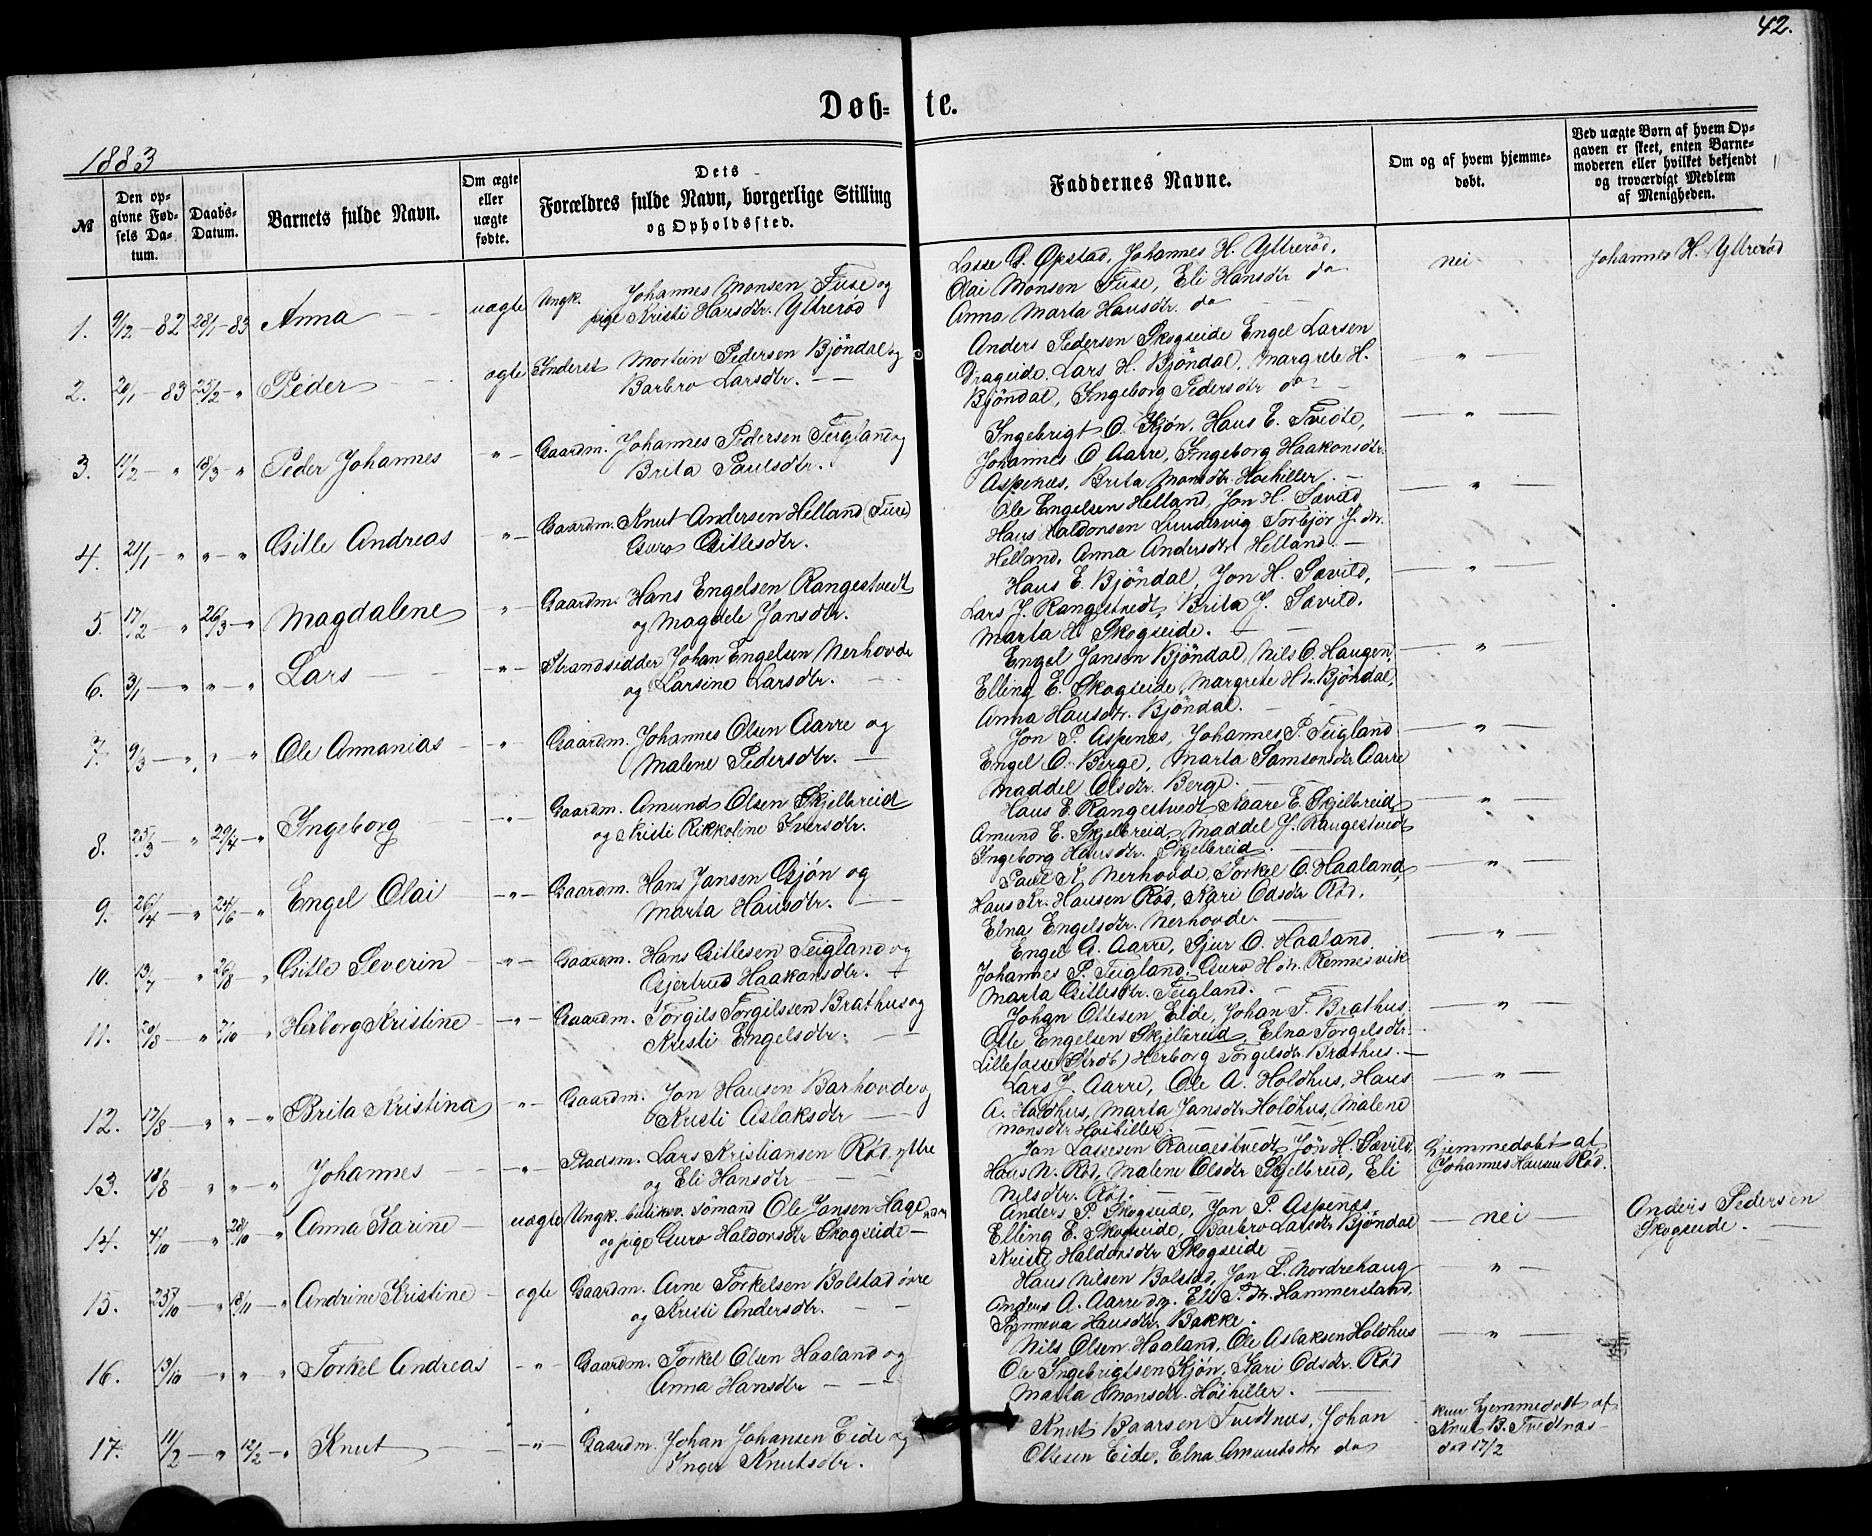 42.
Døb-te.
1883
№
Den op-
givne Fød-
sels Da-
tum.
Daabs-
Datum.
Barnets fulde Navn.
Om ægte
eller
uægte
fødte.
Dets
Forældres fulde Navn, borgerlige Stilling
og Opholdssted.
Faddernes Navne.
Om og af hvem hjemme-
døbt.
Ved uægte Børn af hvem Op-
gaven er skeet, enten Barne-
moderen eller hvilket bekjendt
og troværdigt Medlem
af Menigheden.
1. 9/12-82 28/1-83 Anna uægte Ungk. Johannes Monsen Fuse og
pige Kristi Hansdtr. Yttrerød
Lasse D. Opstad, Johannes H. Yttrerød,
Olai Monsen Fuse, Eli Hansdtr do
Anna Marta Hansdtr. do
nei
Johannes H. Yttrerød
2. 20/1-83 25/2-" Peder ægte Inderst Morten Pedersen Bjöndal og
Barbro Larsdtr.
Anders Pedersen Skogseide Engel Larsen
Drageide, Lars H. Bjöndal, Margrete H.
Bjöndal, Ingeborg Pedersdtr do
"
3. 11/2-" 18/3-" Peder Johannes -"- Gaardm. Johannes Pedersen Teigland og
Brita Paulsdtr.
Ingebrigt O. Gjön, Hans E. Tvedte,
Johannes O Aarre, Ingeborg Haakonsdtr.
Aspenæs, Brita Monsdtr. Hoshiller.
"
4. 21/1-" "-" Gitle Andreas -"- Gaardm. Knut Andersen Helland (Fuse)
Guro Gitlesdtr.
Ole Engelsen Helland, Jon H. Sævild
Hans Haldorsen Lundervig Torbjör J. dtr.
Helland, Anna Andersdtr Helland.
"
5. 17/2-" 26/3-" Magdalene -"- Gaardm. Hans Engelsen Rangestvedt
og Magdele Jansdtr.
Hans E. Bjöndal, Jon H. Sævild,
Lars J. Rangestvedt, Brita J. Sævild,
Marta H. Skogseide.
"
6. 3/1-" "-" Lars -"- Strandsidder Johan Engelsen Nerhovde
og Larsine Larsdtr.
Engel Jansen Bjöndal, Nils O. Haugen,
Elling E. Skogseide, Margrete H dtr. Bjöndal,
Anna Hansdtr. Bjöndal.
"
7. 9/3-" "-" Ole Annanias -"- Gaardm. Johannes Olsen Aarre og
Malene Pedersdtr.
Jon P. Aspenæs, Johannes P. Teigland
Engel O. Berge, Marta Samsonsdtr Aarre
Maddel Olsdtr. Berge.
"
8. 25/3-" 29/4-" Ingeborg -"- Gaardm. Amund Olsen Skjelbreid
og Kristi Rikkoline Iversdtr.
Hans E. Rangestvedt Haare E. Skjelbreid,
Amund E. Skjelbreid, Maddel J. Rangestvedt
Ingeborg Hansdtr. Skjelbreid.
"
9. 26/4-" 24/6-" Engel Olai -"- Gaardm. Hans Jansen Gjøn og
Marta Hansdtr.
Paul K. Nerhovde, Torkel O. Haaland,
Hans Kr. Hansen Rød, Kari Odsdtr Rød,
Elna Engelsdtr. Nerhovde.
"
10. 13/7 " 26/8-" Gitle Severin -"- Gaardm. Hans Gitlesen Teigland og
Gjertrud Haakonsdtr.
Engel A. Aarre, Sjur O. Haaland
Johannes P. Teigland, Guro H dtr. Rennesvik
Marta Gitlesdtr. Teigland.
"
11. 20/8-" 7/10-" Herborg Kristine -"- Gaardm. Torgils Torgilssen Brathus og
Kristi Engelsdtr.
Johan Ottesen Eide, Johan T. Brathus
Ole Engelsen Skjelbreid, Elna Torgelsdtr.
Herborg Torgilsdtr. Brathus.
"
12. 17/8-" "-" Brita Kristina -"- Gaardm. Jon Hansen Barhovde og
Kristi Aslaksdtr
Lars J. Aarre, Ole A. Holdhus, Hans
A. Holdhus, Marta Jansdtr Holdhus, Malene
Monsdtr Hoshiller.
"
13. 18/8-" "-" Johannes -"- Pladsm. Lars Kristiansen Rød, yttre
og Eli Hansdtr
Jan Lassesen Rangestvedt, Jön H. Sævild,
Hans N. Rød, Malene Olsdtr Skjelbreid, Eli
Nilsdtr. Rød.
Hjemmedøbt af
Johannes Hansen Rød.
14. 4/10-" 28/10-" Anna Karine uægte Ungk. Sømand Ole Jansen Hage
og pige Guro Haldorsdtr Skogseide
Anders P. Skogseide, Jon P. Aspenæs
Elling E. Skogseide, Barbro Larsdtr Bjöndal
Kristi Haldorsdtr Skogseide
nei
Anders Pedersen
Skogseide.
15. 25/10-" 18/11-" Andrine Kristine ægte Gaardm. Arne Torkelsen Bolstad övre
og Kristi Andersdtr.
Hans Nilsen Bolstad, Jon L. Nordrehaug
Anders A. Aarre og Eli P. dtr. Hammersland,
Synneva Hansdtr. Bakke.
"
16. 13/10-" "-" Torkel Andreas -"- Gaardm. Torkel Olsen Haaland og
Anna Hansdtr
Nils Olsen Haaland, Ole Aslaksen Holdhus
Ole Ingebrigtsen Gjön, Kari Odsdtr. Rød
Marta Monsdtr. Höshiller.
"
17. 11/2-" 12/2-" Knut -"- Gaardm. Johan Johansen Eide og
Inger Knutsdtr.
Knut Baarsen Tvedtnes, Johan
Ottesen Eide, Elna Amundsdtr do
kun hjemmedøbt af
Knut B. Tvedtnas
död 17/2